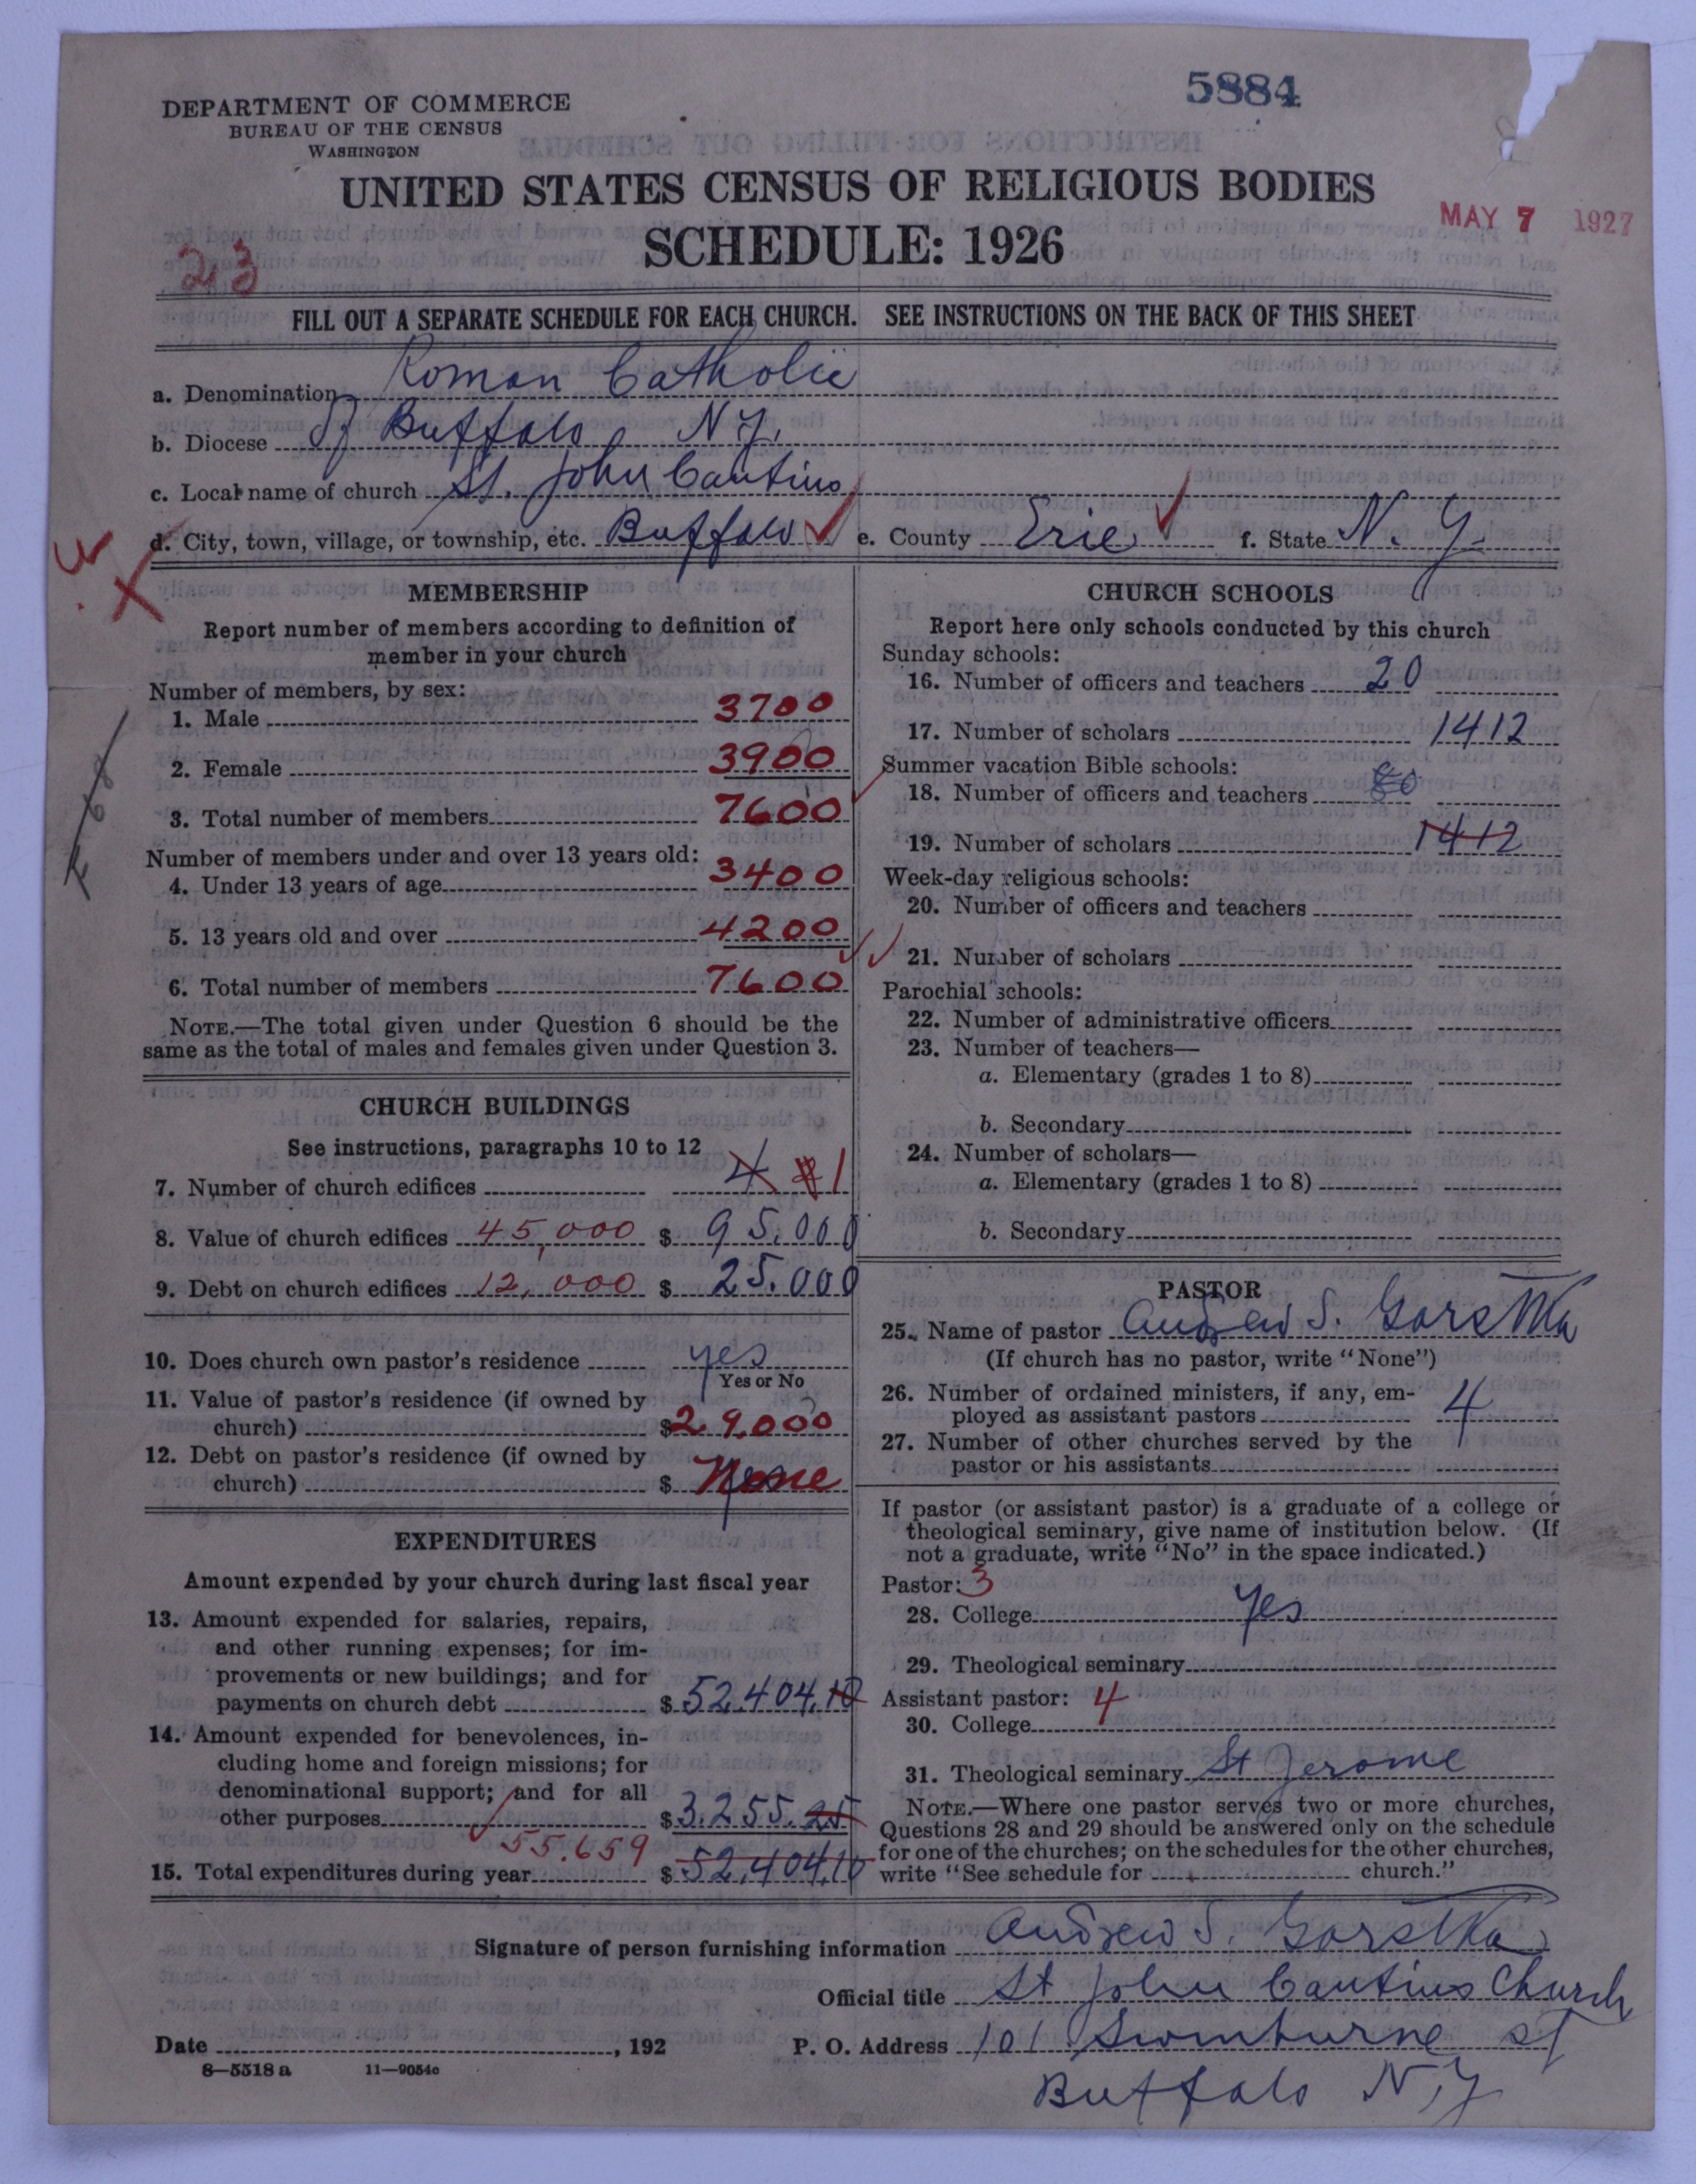 5884
DEPARTMENT OF COMMERCE
BUREAU OF THE CENSUS
WASHINGTON
UNITED STATES CENSUS OF RELIGIOUS BODIES
MAY 7 1927
SCHEDULE: 1926
23
FILL OUT A SEPARATE SCHEDULE FOR EACH CHURCH. SEE INSTRUCTIONS ON THE BACK OF THIS SHEET
a. Denomination Roman Catholic
b. Diocese of Buffalo N.Y.
c. Local name of church St. John Cantius
d. City, town, village, or township, etc. Buffalo e. County Erie f. State N.Y.
MEMBERSHIP
Report number of members according to definition of
member in your church
Number of members, by sex:
1. Male 3700
2. Female 3900
3. Total number of members 7600
Number of members under and over 13 years old:
4. Under 13 years of age 3400
5. 13 years old and over 4200
6. Total number of members 7600
NOTE.—The total given under Question 6 should be the
same as the total of males and females given under Question 3.
CHURCH BUILDINGS
See instructions, paragraphs 10 to 12
7. Number of church edifices 4 1
8. Value of church edifices 45,000 $ 95.000
9. Debt on church edifices 12,000 $ 25.000
10. Does church own pastor's residence yes
Yes or No
11. Value of pastor's residence (if owned by
church) $ 29.000
12. Debt on pastor's residence (if owned by
church) $ None
EXPENDITURES
Amount expended by your church during last fiscal year
13. Amount expended for salaries, repairs,
and other running expenses; for im-
provements or new buildings; and for
payments on church debt $ 52.404.10
14. Amount expended for benevolences, in-
cluding home and foreign missions; for
denominational support; and for all
other purposes $ 3.255.25
55.659
15. Total expenditures during year $ 52.404.10
CHURCH SCHOOLS
Report here only schools conducted by this church
Sunday schools:
16. Number of officers and teachers 20
17. Number of scholars 1412
Summer vacation Bible schools:
18. Number of officers and teachers
19. Number of scholars 1412
Week-day religious schools:
20. Number of officers and teachers
21. Number of scholars
Parochial schools:
22. Number of administrative officers
23. Number of teachers—
a. Elementary (grades 1 to 8)
b. Secondary
24. Number of scholars—
a. Elementary (grades 1 to 8)
b. Secondary
PASTOR
25. Name of pastor Andrew S. Garstka
(If church has no pastor, write "None")
26. Number of ordained ministers, if any, em-
ployed as assistant pastors 4
27. Number of other churches served by the
pastor or his assistants
If pastor (or assistant pastor) is a graduate of a college or
theological seminary, give name of institution below. (If
not a graduate, write "No" in the space indicated.)
Pastor: 3
28. College yes
29. Theological seminary
Assistant pastor: 4
30. College
31. Theological seminary St Jerome
NOTE.—Where one pastor serves two or more churches,
Questions 28 and 29 should be answered only on the schedule
for one of the churches; on the schedules for the other churches,
write "See schedule for church."
Signature of person furnishing information Andrew S. Garstka
Official title St John Cantius Church
Date , 192 P. O. Address 101 Swinburne St
8—5518 a 11—9054c
Buffalo N.Y